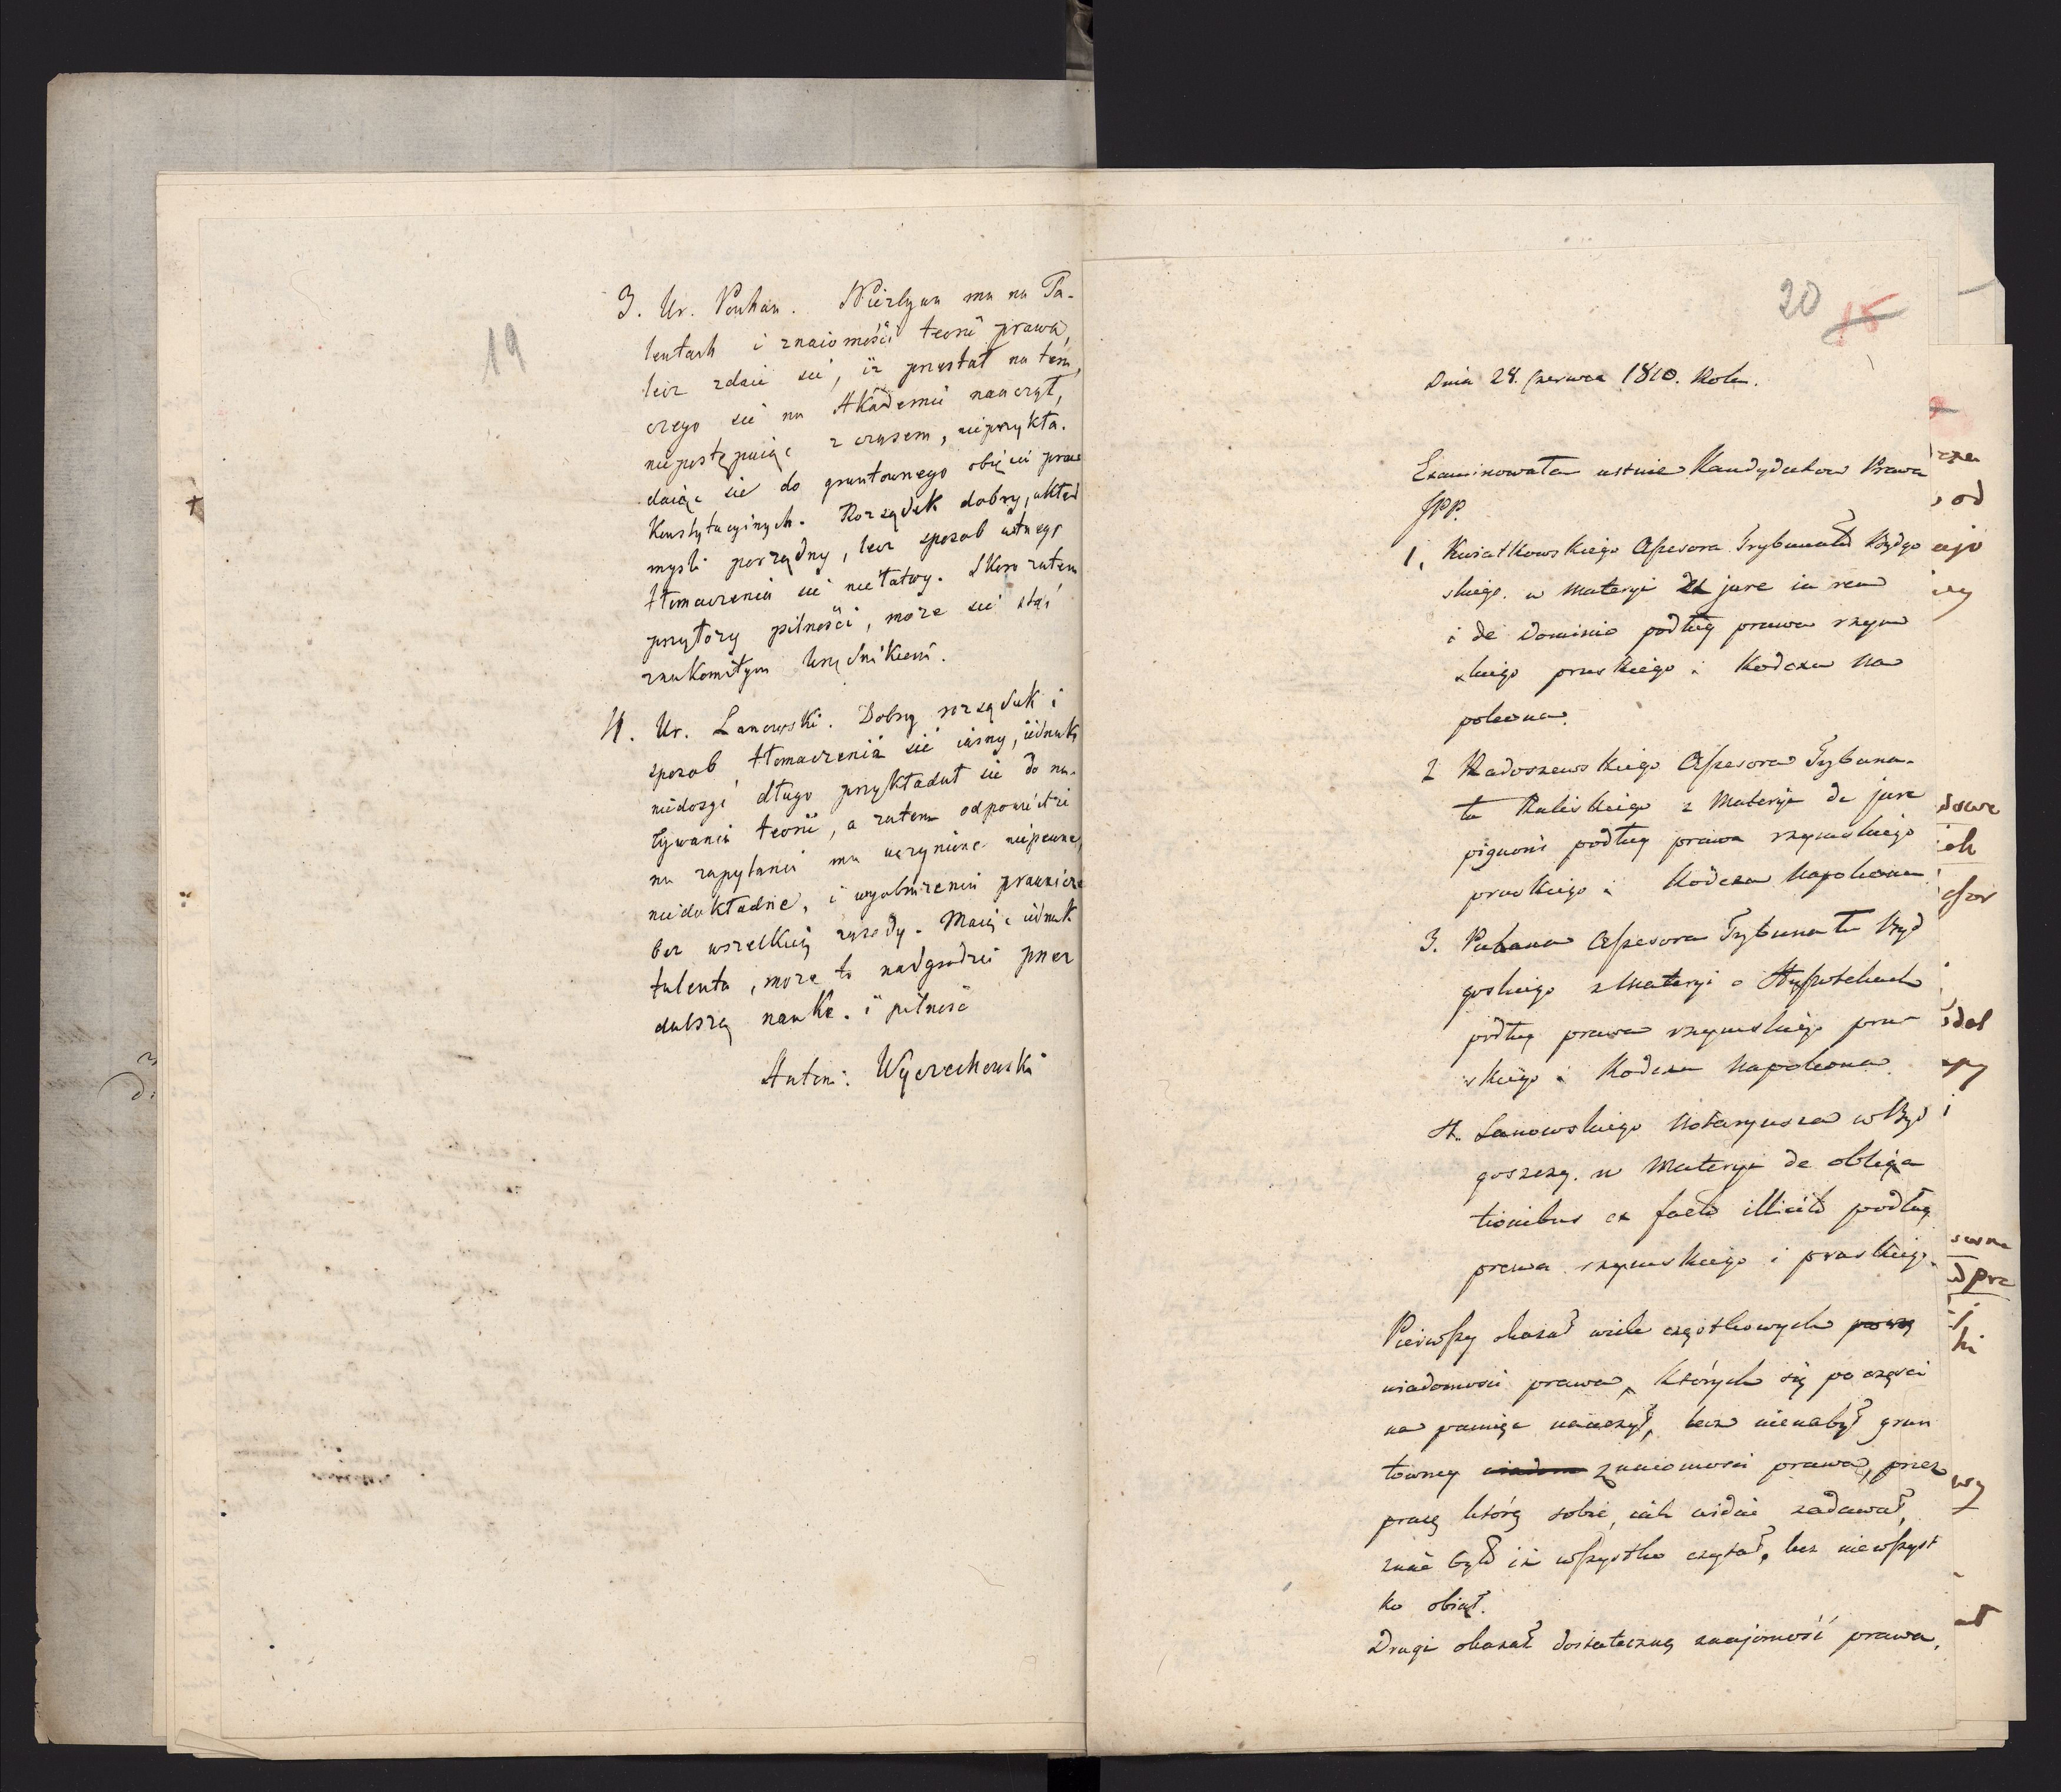 19
3. Ur. Pouhan. Niezbywa mu na Ta-
lentach i znaiomości teorii prawa,
lecz zdaie się, iż przestał na tém,
czego się na Akademii nauczył,
niepostępuiąc z czasem, nieprzykła-
daiąc się do gruntownego obięcia praw
Konstytucyinych. Rozsądek dobry, układ
myśli porządny, lecz sposob ustnego
tłomaczenia się niełatwy. Skoro zatem
przyłoży pilności, może się stać
znakomitym Urzędnikiem.
4. Ur. Lanowski. Dobry rozsądek i
sposob tłomaczenia się iasny, iednak
niedosyć długo przykładał się do na-
bywania teorii, a zatem odpowiedzi
na zapytania mu uczynione niepewne,
niedokładne, i wyobrażenia prawnicze
bez wszelkiey zasady. Maiąc iednak
talenta, może to nadgrodzić przez
dalszą naukę i pilność
Antoni Wyczechowski
20 15
Dnia 28. Czerwca 1810. Roku.
Examinowałem ustnie Kandydatow Prawa
JPP.
1. Kwiatkowskiego Assesora Trybunału Bydgo
skiego w materyi de jure in rem
i de Dominio podług prawa rzym
skiego pruskiego i Kodexu Na
poleona.
2 Radoszewskiego Assesora Trybuna-
łu Kaliskiego z Materyi de jure
pignoris podług prawa rzymskiego
pruskiego i Kodexu Napoleona
3. Puhana Assesora Trybunału Byd
goskiego z Materyi o Hypotekach
podług prawa rzymskiego pru-
skiego i Kodexu Napoleona
4. Lanowskiego Notaryusza w Byd
goszczy. w Materyi de obliga
tionibus ex facto illicito podług
prawa rzymskiego i pruskiego.
Pierwszy okazał wiele cząstkowych
wiadomości prawa, których się po części
na pamięć nauczył, lecz nienabył grun
towney znaiomości prawa, przez
pracę którą sobie, iak widać zadawał,
znać było iż wszystko czytał, lecz niewszyst
ko obiął.
Drugi okazał dostateczną znajomość prawa,